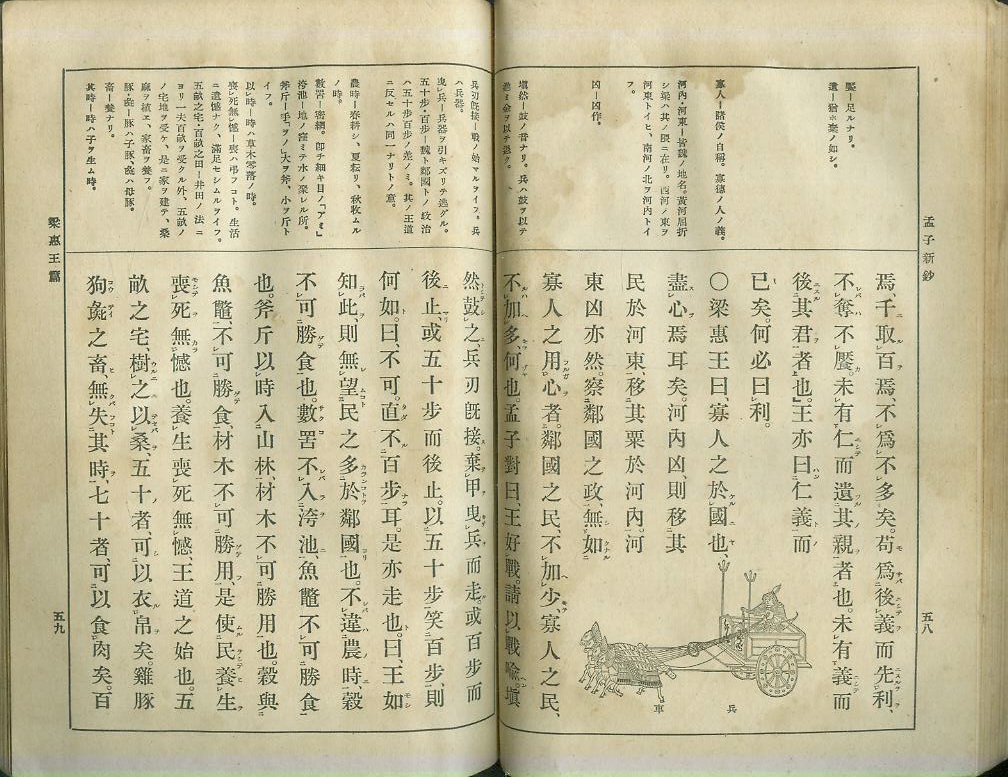 孟子新鈔
五八
饜ー足ルナリ。
遺ー猶ホ棄ノ如シ。
寡人ー諸侯ノ自稱。寡德ノ人ノ義。
河內・河東ー皆魏ノ地名。黃河屈折
シ梁ハ其ノ隈ニ在リ。西河ノ東ヲ
河東トイヒ、南河ノ北ヲ河內トイ
フ。
凶ー凶作。
塡然ー鼓ノ音ナリ。兵ハ鼓ヲ以テ
進ミ金ヲ以テ退ク。
焉、千取百焉、不爲不多矣。苟爲後義而先利、
不奪不饜。未有仁而遺其親者也。未有義而
後其君者也。王亦曰仁義而
已矣。何必曰利。
〇梁惠王曰、寡人之於國也、
盡心焉耳矣。河內凶、則移其
民於河東、移其粟於河內。河
東凶亦然。察鄰國之政、無如
寡人之用心者。鄰國之民、不加少、寡人之民、
不加多、何也。孟子對曰、王好戰。請以戰喩。塡
兵車
兵刃旣接ー戰ノ始マルヲイフ。兵
ハ兵器。
曳兵ー兵器ヲ引キズリテ逃グル。
五十步・百步ー魏ト鄰國トノ政治
ハ五十步百步ノ差ノミ。其ノ王道
ニ反セルハ同一ナリトノ意。
農時ー春耕シ、夏耘リ、秋收ムル
ノ時。
數罟ー密網。卽チ細キ目ノ「アミ」
洿池ー地ノ窪ミテ水ノ聚レル所。
斧斤ー手「ヲノ」大ヲ斧、小ヲ斤ト
イフ。
以時ー時ハ草木零落ノ時。
喪死無憾ー喪ハ弔フコト。生活
ニ遺憾ナク、滿足セシムルヲイフ。
五畝之宅・百畝之田ー井田ノ法ニ
ヨリ一夫百畝ヲ受クル外、五畝ノ
ノ宅地ヲ受ケ、是ニ家ヲ建テ、桑
麻ヲ植エ、家畜ヲ養フ。
豚・彘ー豚ハ子豚、彘ハ母豚。
畜ー養ナリ。
其時ー時ハ子ヲ生ム時。
然鼓之、兵刃旣接。棄甲曳兵而走。或百步而
後止、或五十步而後止。以五十步笑百步、則
何如。曰、不可。直不百步耳。是亦走也。曰、王如
知此、則無望民之多於鄰國也。不違農時、穀
不可勝食也。數罟不入洿池、魚鼈不可勝食
也。斧斤以時入山林、材木不可勝用也。穀與
魚鼈、不可勝食、材木不可勝用、是使民養生
喪死無憾也。養生喪死無憾、王道之始也。五
畝之宅、樹之以桑、五十者、可以衣帛矣。雞豚
狗彘之畜、無失其時、七十者、可以食肉矣。百
梁惠王篇
五九